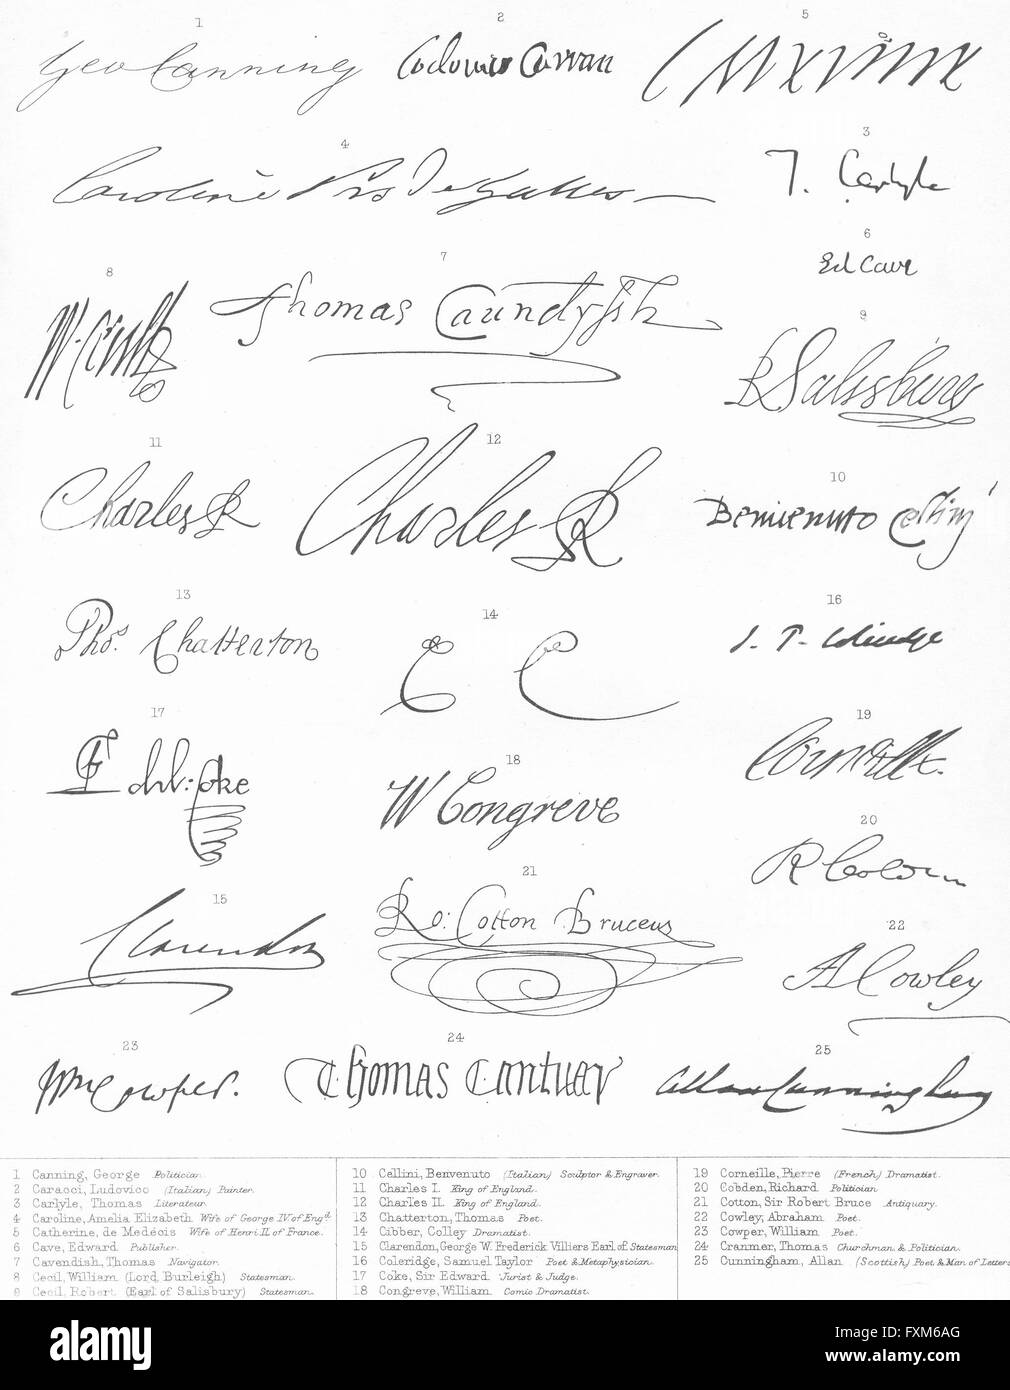 1 2 5
Geo Canning Lodovico Carracci
4 3
Caroline Prs De Galles T. Carlyle
6
Ed Cave
8 7 9
W. Cecill Thomas Caundyssh R Salisbury
11 12 10
Charles R Charles R Benvenuto Cellinj
13 14 16
Thos. Chatterton C C S. T. Coleridge
17 18 19
Edw: Coke W Congreve Corneille.
20
R Cobden
15 21 22
Clarendon Ro: Cotton Bruceus A Cowley
23 24 25
Wm Cowper. Thomas Cantuar Allan Cunningham
1 Canning, George Politician.
2 Caracci, Ludovico (Italian) Painter.
3 Carlyle, Thomas Literateur.
4 Caroline, Amelia Elizabeth Wife of George IV of Engd.
5 Catherine, de Medécis Wife of Henri II. of France.
6 Cave, Edward Publisher.
7 Cavendish, Thomas Navigator.
8 Cecil, William (Lord, Burleigh) Statesman.
9 Cecil, Robert (Earl of Salisbury) Statesman.
10 Cellini, Benvenuto (Italian) Sculptor & Engraver.
11 Charles I. King of England.
12 Charles II. King of England.
13 Chatterton, Thomas Poet.
14 Cibber, Colley Dramatist.
15 Clarendon, George W. Frederick Villiers Earl of. Statesman
16 Coleridge, Samuel Taylor Poet & Metaphysician.
17 Coke, Sir Edward Jurist & Judge.
18 Congreve, William Comic Dramatist.
19 Corneille, Pierre (French) Dramatist.
20 Cobden, Richard Politician
21 Cotton, Sir Robert Bruce Antiquary.
22 Cowley, Abraham Poet.
23 Cowper, William Poet.
24 Cranmer, Thomas Churchman & Politician.
25 Cunningham, Allan (Scottish) Poet & Man of Letters
alamy stock photo
FXM6AG
www.alamy.com